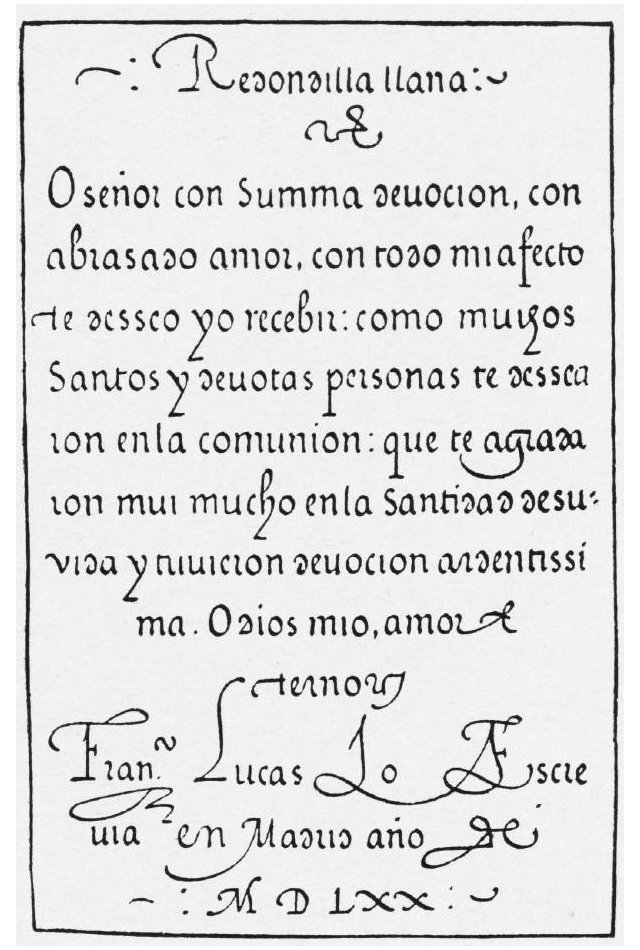 Redondilla llana:
O señor con Summa deuocion, con
abrasado amor, con todo mi afecto
te desseo yo recebir: como muchos
Santos y deuotas personas te dessea
ron enla comunion: que te agrada
ron mui mucho enla Santidad desu
vida y tuuieron deuocion ardentissi
ma. O dios mio, amor
eternou
Fran.co Lucas lo Escre
uia en Madrid año de
MDLXX